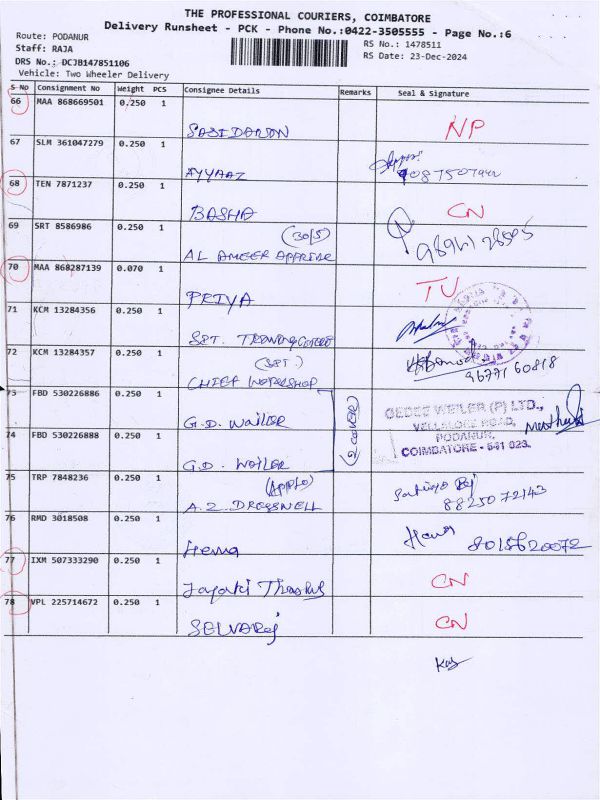 THE PROFESSIONAL COURIERS, COIMBATORE
Delivery Runsheet - PCK - Phone No.:0422-3505555 - Page No.:6
Route: PODANUR
Staff: RAJA
DRS No.: DCJB147851106
Vehicle: Two Wheeler Delivery
RS No.: 1478511
RS Date: 23-Dec-2024
S No Consignment No Weight PCS Consignee Details Remarks Seal & Signature
66 MAA 868669501 0.250 1
NP
67 SLM 361047279 0.250 1
AYYAAZ
68 TEN 7871237 0.250 1
BASHA CN
69 SRT 8586986 0.250 1
(30/5)
AL AMEER
70 MAA 868287139 0.070 1
PRIYA TU
71 KCM 13284356 0.250 1
SST.
72 KCM 13284357 0.250 1
(SST.)
CHIEF WORKSHOP 96771 60818
73 FBD 530226886 0.250 1
G.D. Wailer (2 COVER)
GEDEE WEILER (P) LTD.,
VELLALORE ROAD,
PODANUR,
COIMBATORE - 641 023.
74 FBD 530226888 0.250 1
G.D. Wailer
75 TRP 7848236 0.250 1
(APPLO)
A.Z. DRESSWELL 88250 72143
76 RMD 3018508 0.250 1
Hema Hema 8015620072
77 IXM 507333290 0.250 1
CN
78 VPL 225714672 0.250 1
SELVARaj CN